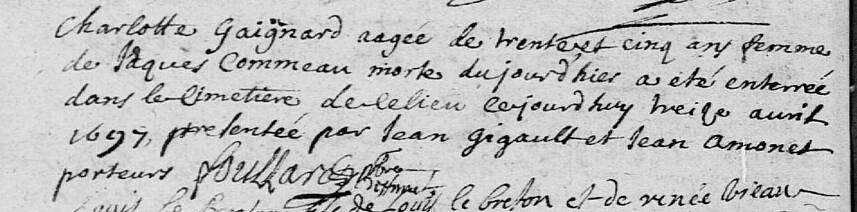 Charlotte Gaignard aageé de trente et cinq ans femme
de Jaques Commeau morte du jourdhier a eté enterreé
dans le Cimetiere de ce lieu ce jourdhuy treize avril
1697, presenteé par Jean Gigault et Jean Amonet
porteurs
Louis le de Louis le breton et de renée